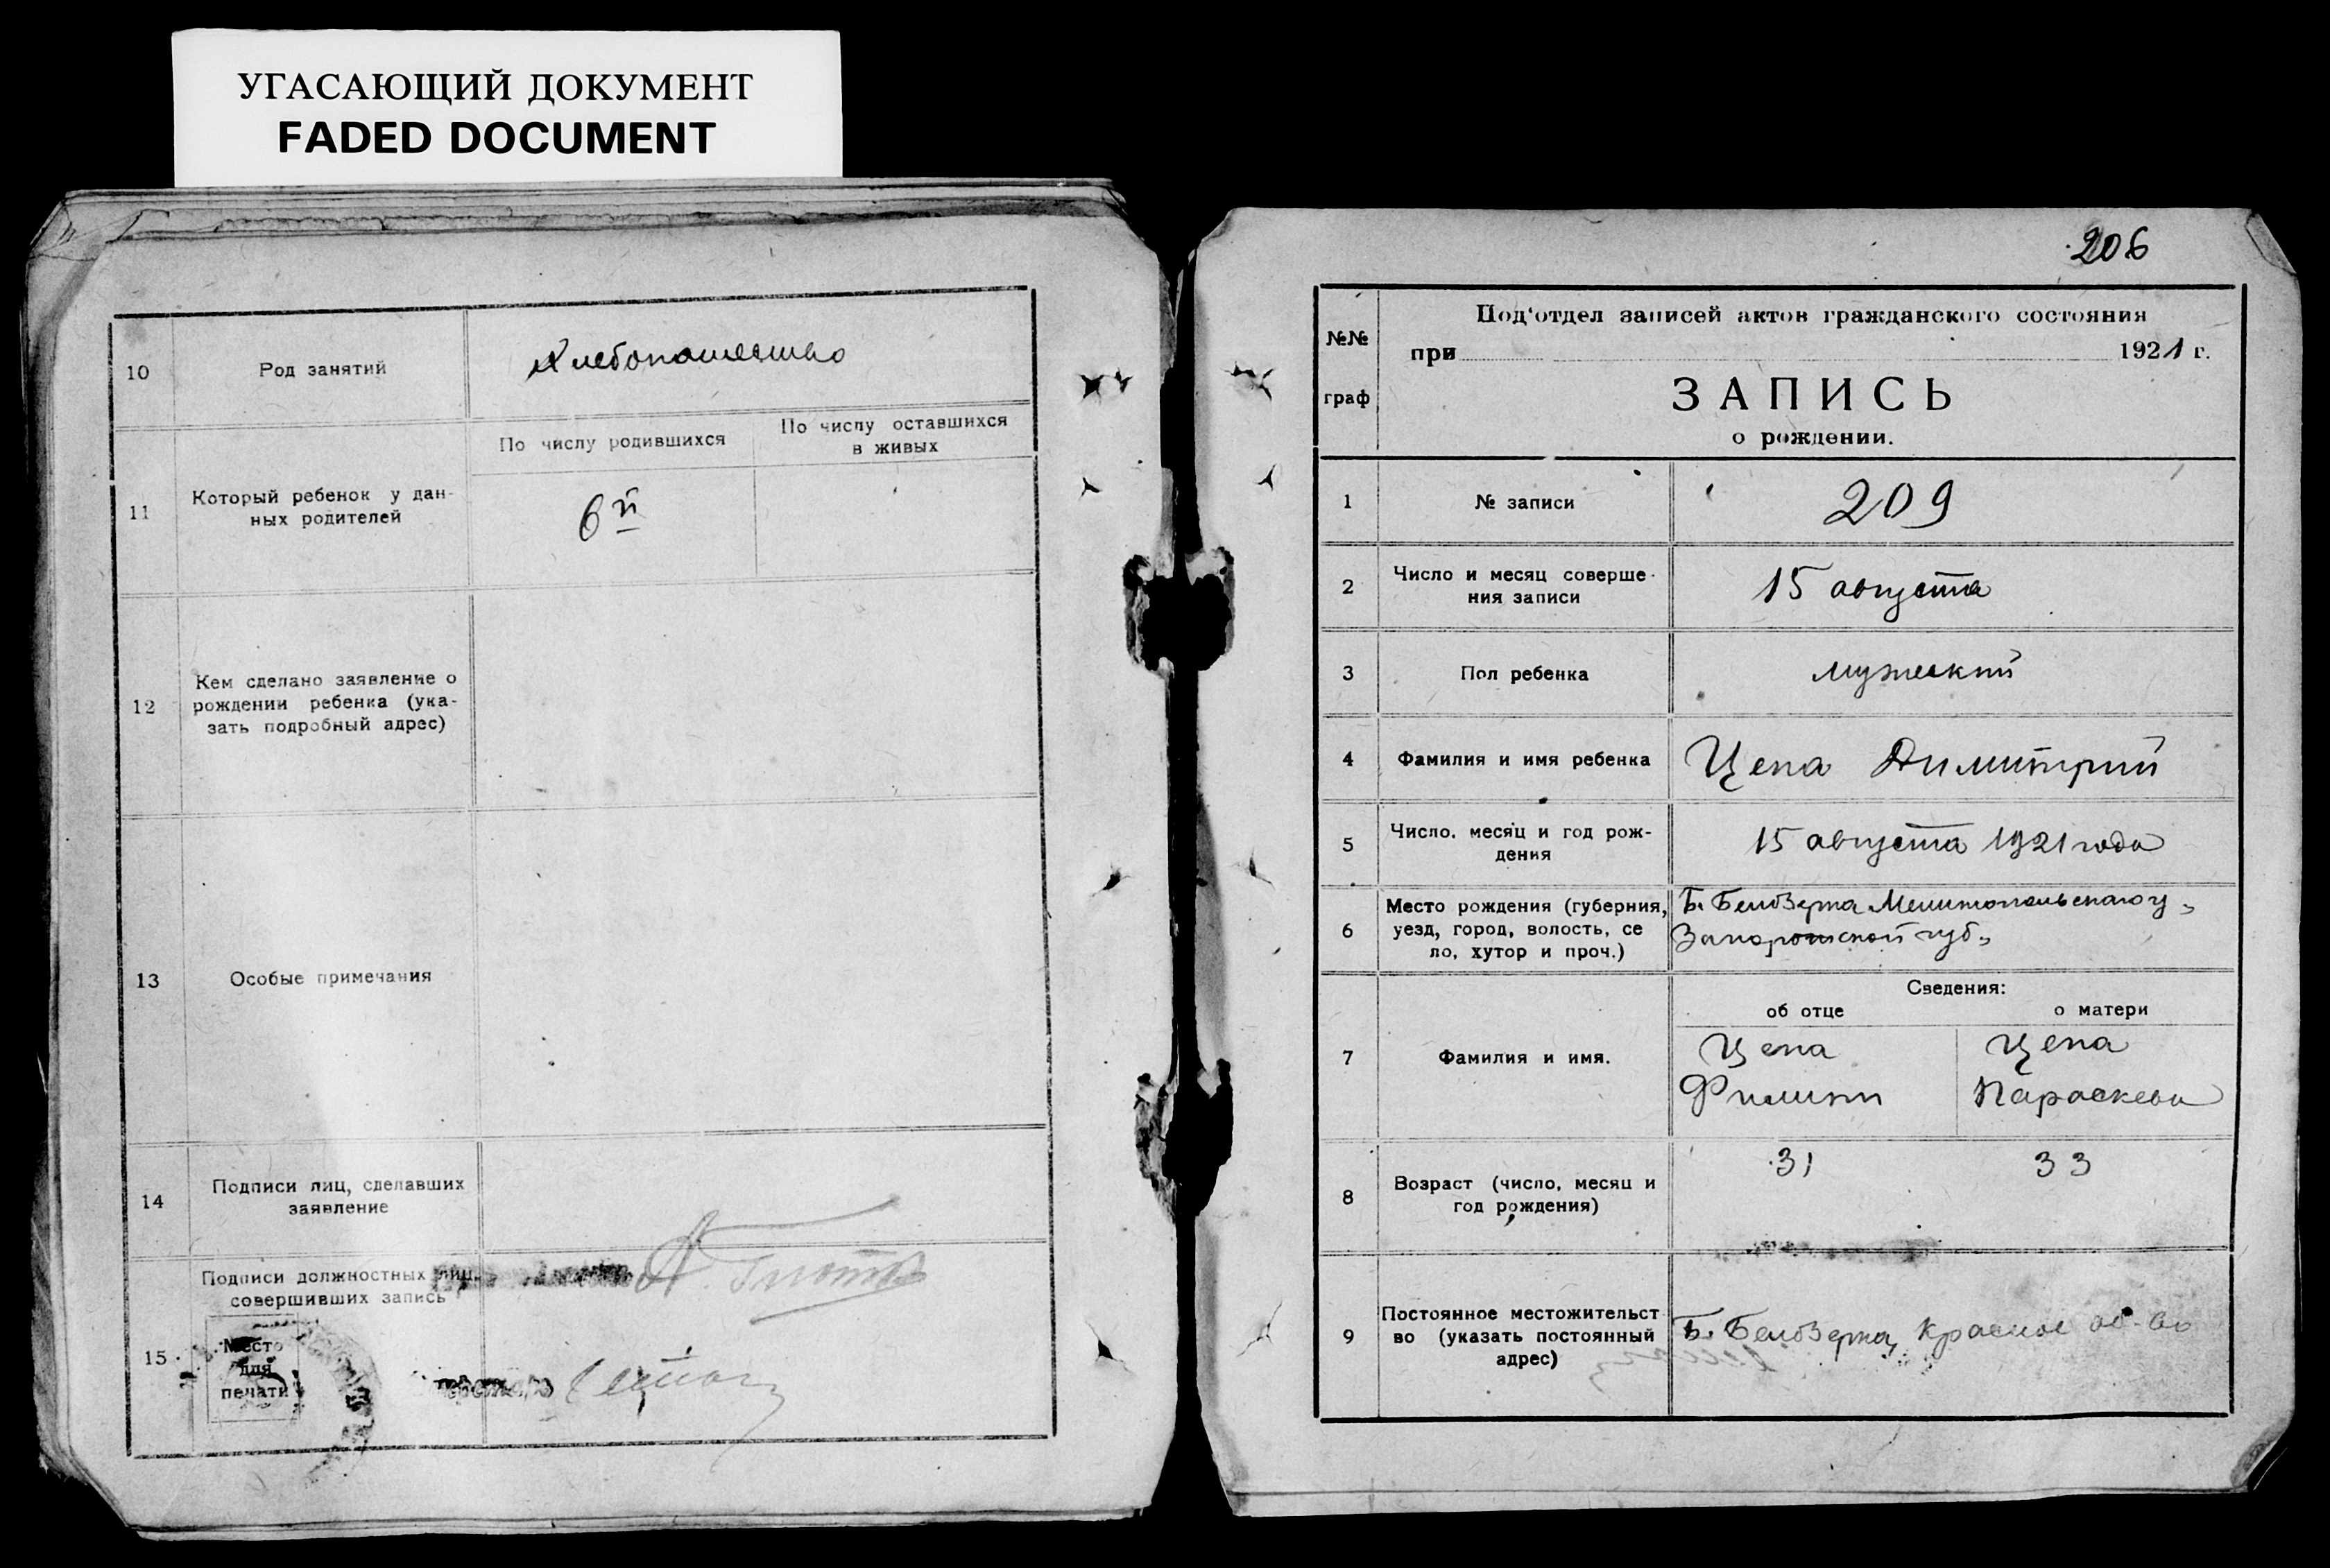 УГАСАЮЩИЙ ДОКУМЕНТ
FADED DOCUMENT
10
Род занятий
Хлебопашество
11
Который ребенок у дан-
ных родителей
По числу родившихся
По числу оставшихся
в живых
6й
12
Кем сделано заявление о
рождении ребенка (ука-
зать подробный адрес)
13
Особые примечания
14
Подписи лиц, сделавших
заявление
15
Подписи должностных лиц,
совершивших запись
Место
для
печати
206
№№
граф
Под'отдел записей актов гражданского состояния
при 1921 г.
ЗАПИСЬ
о рождении.
1
№ записи
209
2
Число и месяц соверше-
ния записи
15 августа
3
Пол ребенка
мужеский
4
Фамилия и имя ребенка
Цепа Димитрий
5
Число, месяц и год рож-
дения
15 августа 1921 года
6
Место рождения (губерния,
уезд, город, волость, се
ло, хутор и проч.)
Б. Белозерка Мелитопольского у
Запорожской губ.
Сведения:
об отце
о матери
7
Фамилия и имя.
Цепа
Филипп
Цепа
Параскева
8
Возраст (число, месяц и
год рождения)
31
33
9
Постоянное местожительст
во (указать постоянный
адрес)
Б. Белозерка, Красное об-во